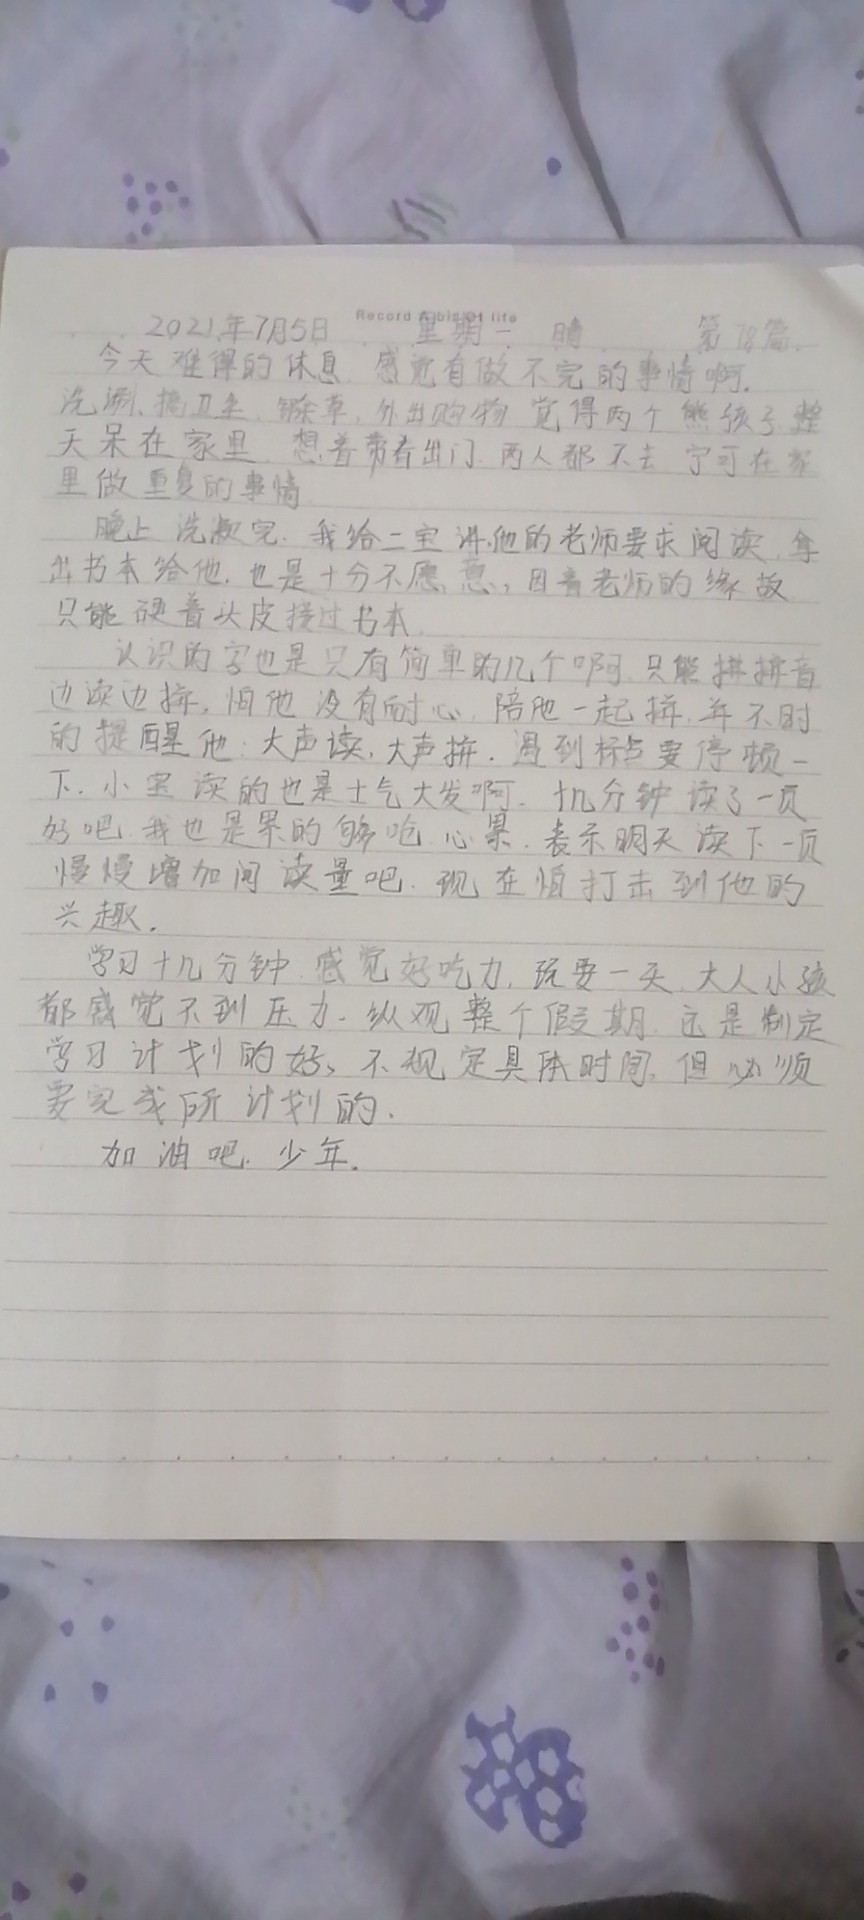 Record A bit Of life
2021年7月5日 星期一 晴 第78篇.
今天难得的休息 感觉有做不完的事情啊.
洗涮、搞卫生、锄草, 外出购物 觉得两个熊孩子整
天呆在家里 想着带着出门 两人都不去 宁可在家
里做重复的事情
晚上洗漱完. 我给二宝讲他的老师要求阅读 拿
出书本给他, 也是十分不愿意, 因着老师的缘故
只能硬着头皮接过书本
认识的字也是只有简单的几个啊 只能拼拼音
边读边拼, 怕他没有耐心 陪他一起拼, 并不时
的提醒他: 大声读, 大声拼. 遇到标点要停顿一
下. 小宝读的也是士气大发啊. 十几分钟读了一页
好吧 我也是累的够呛 心累. 表示明天读下一页
慢慢增加阅读量吧. 现在怕打击到他的
兴趣.
学习十几分钟 感觉好吃力, 玩耍一天 大人小孩
都感觉不到压力. 纵观整个假期 还是制定
学习计划的好, 不规定具体时间, 但必须
要完成所计划的.
加油吧. 少年.